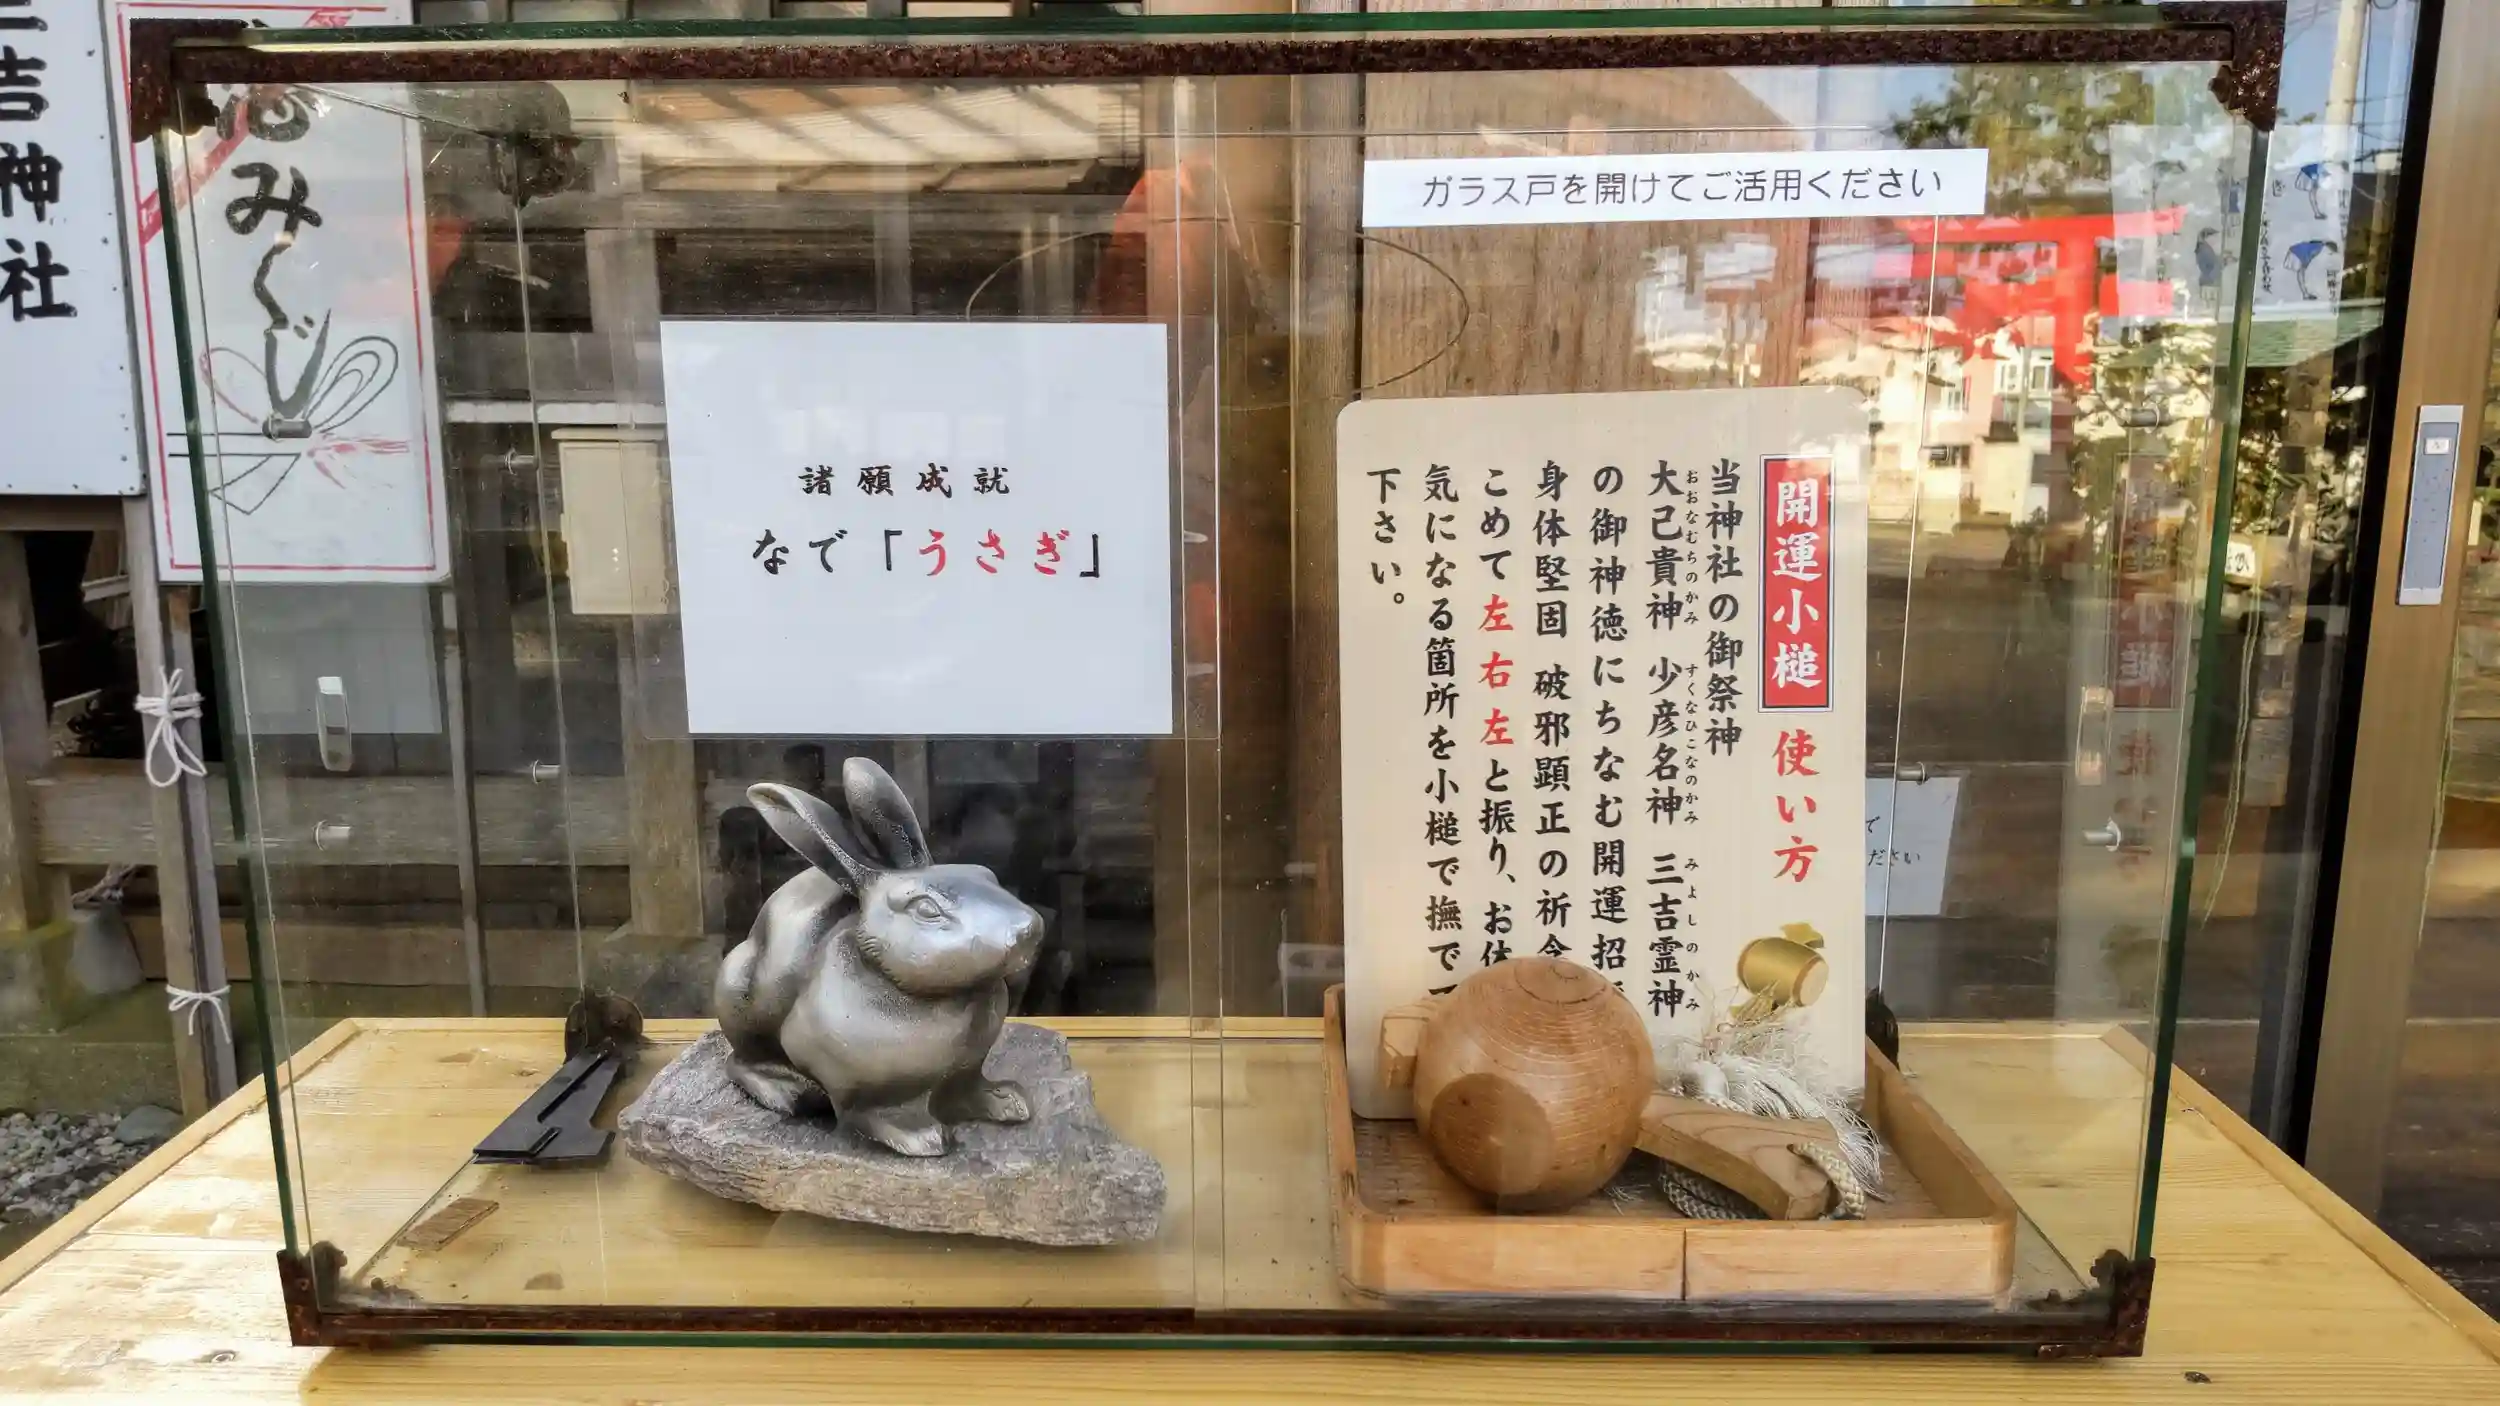 三吉神社
おみくじ
ガラス戸を開けてご活用ください
諸願成就
なで「うさぎ」
開運小槌 使い方
当神社の御祭神
大己貴神 少彦名神 三吉霊神
おおなむちのかみ すくなひこなのかみ みよしのかみ
の御神徳にちなむ開運招
身体堅固 破邪顕正の祈念
こめて左右左と振り、お体
気になる箇所を小槌で撫で
下さい。